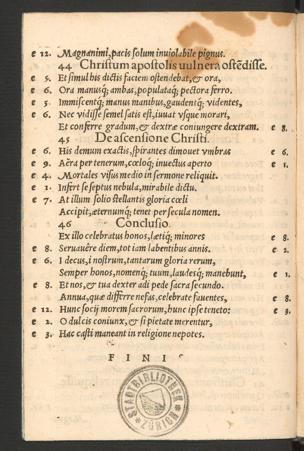 e 12. Magnanimi, pacis solum inuiolabile pignus.
44 Christum apostolis uulnera ostẽdisse.
e 5. Et simul his dictis faciem ostendebat, & ora,
e 6. Ora manusq; ambas, populataq; pectora ferro.
e 5. Immiscentq; manus manibus, gaudentq; videntes,
e 6. Nec vidisse semel satis est, iuuat vsque morari,
Et conferre gradum, & dextræ coniungere dextram. e 8.
45 De ascensione Christi.
e 6. His demum exactis, spirantes dimouet vmbras e 6.
e 9. Aëra per tenerum, cœloq; inuectus aperto e 1.
e 4. Mortales visus medio in sermone reliquit.
e 1. Infert se septus nebula, mirabile dictu.
e 7. At illum solio stellantis gloria cœli
Accipit, æternumq; tenet per secula nomen.
46 Conclusio.
Ex illo celebratus honos, lætiq; minores e 8.
e 8. Seruauêre diem, tot iam labentibus annis. e 2.
e 6. I decus, i nostrum, tantarum gloria rerum,
Semper honos, nomenq; tuum, laudesq; manebunt, e 1.
e 8. Et nos, & tua dexter adi pede sacra secundo.
Annua, quæ differre nefas, celebrate fauentes, e 8.
e 12. Hunc socij morem sacrorum, hunc ipse teneto: e 3.
e 2. O dulcis coniunx, & si pietate meremur,
e 3. Hac casti maneant in religione nepotes.
FINIS
STADTBIBLIOTHEK
ZÜRICH